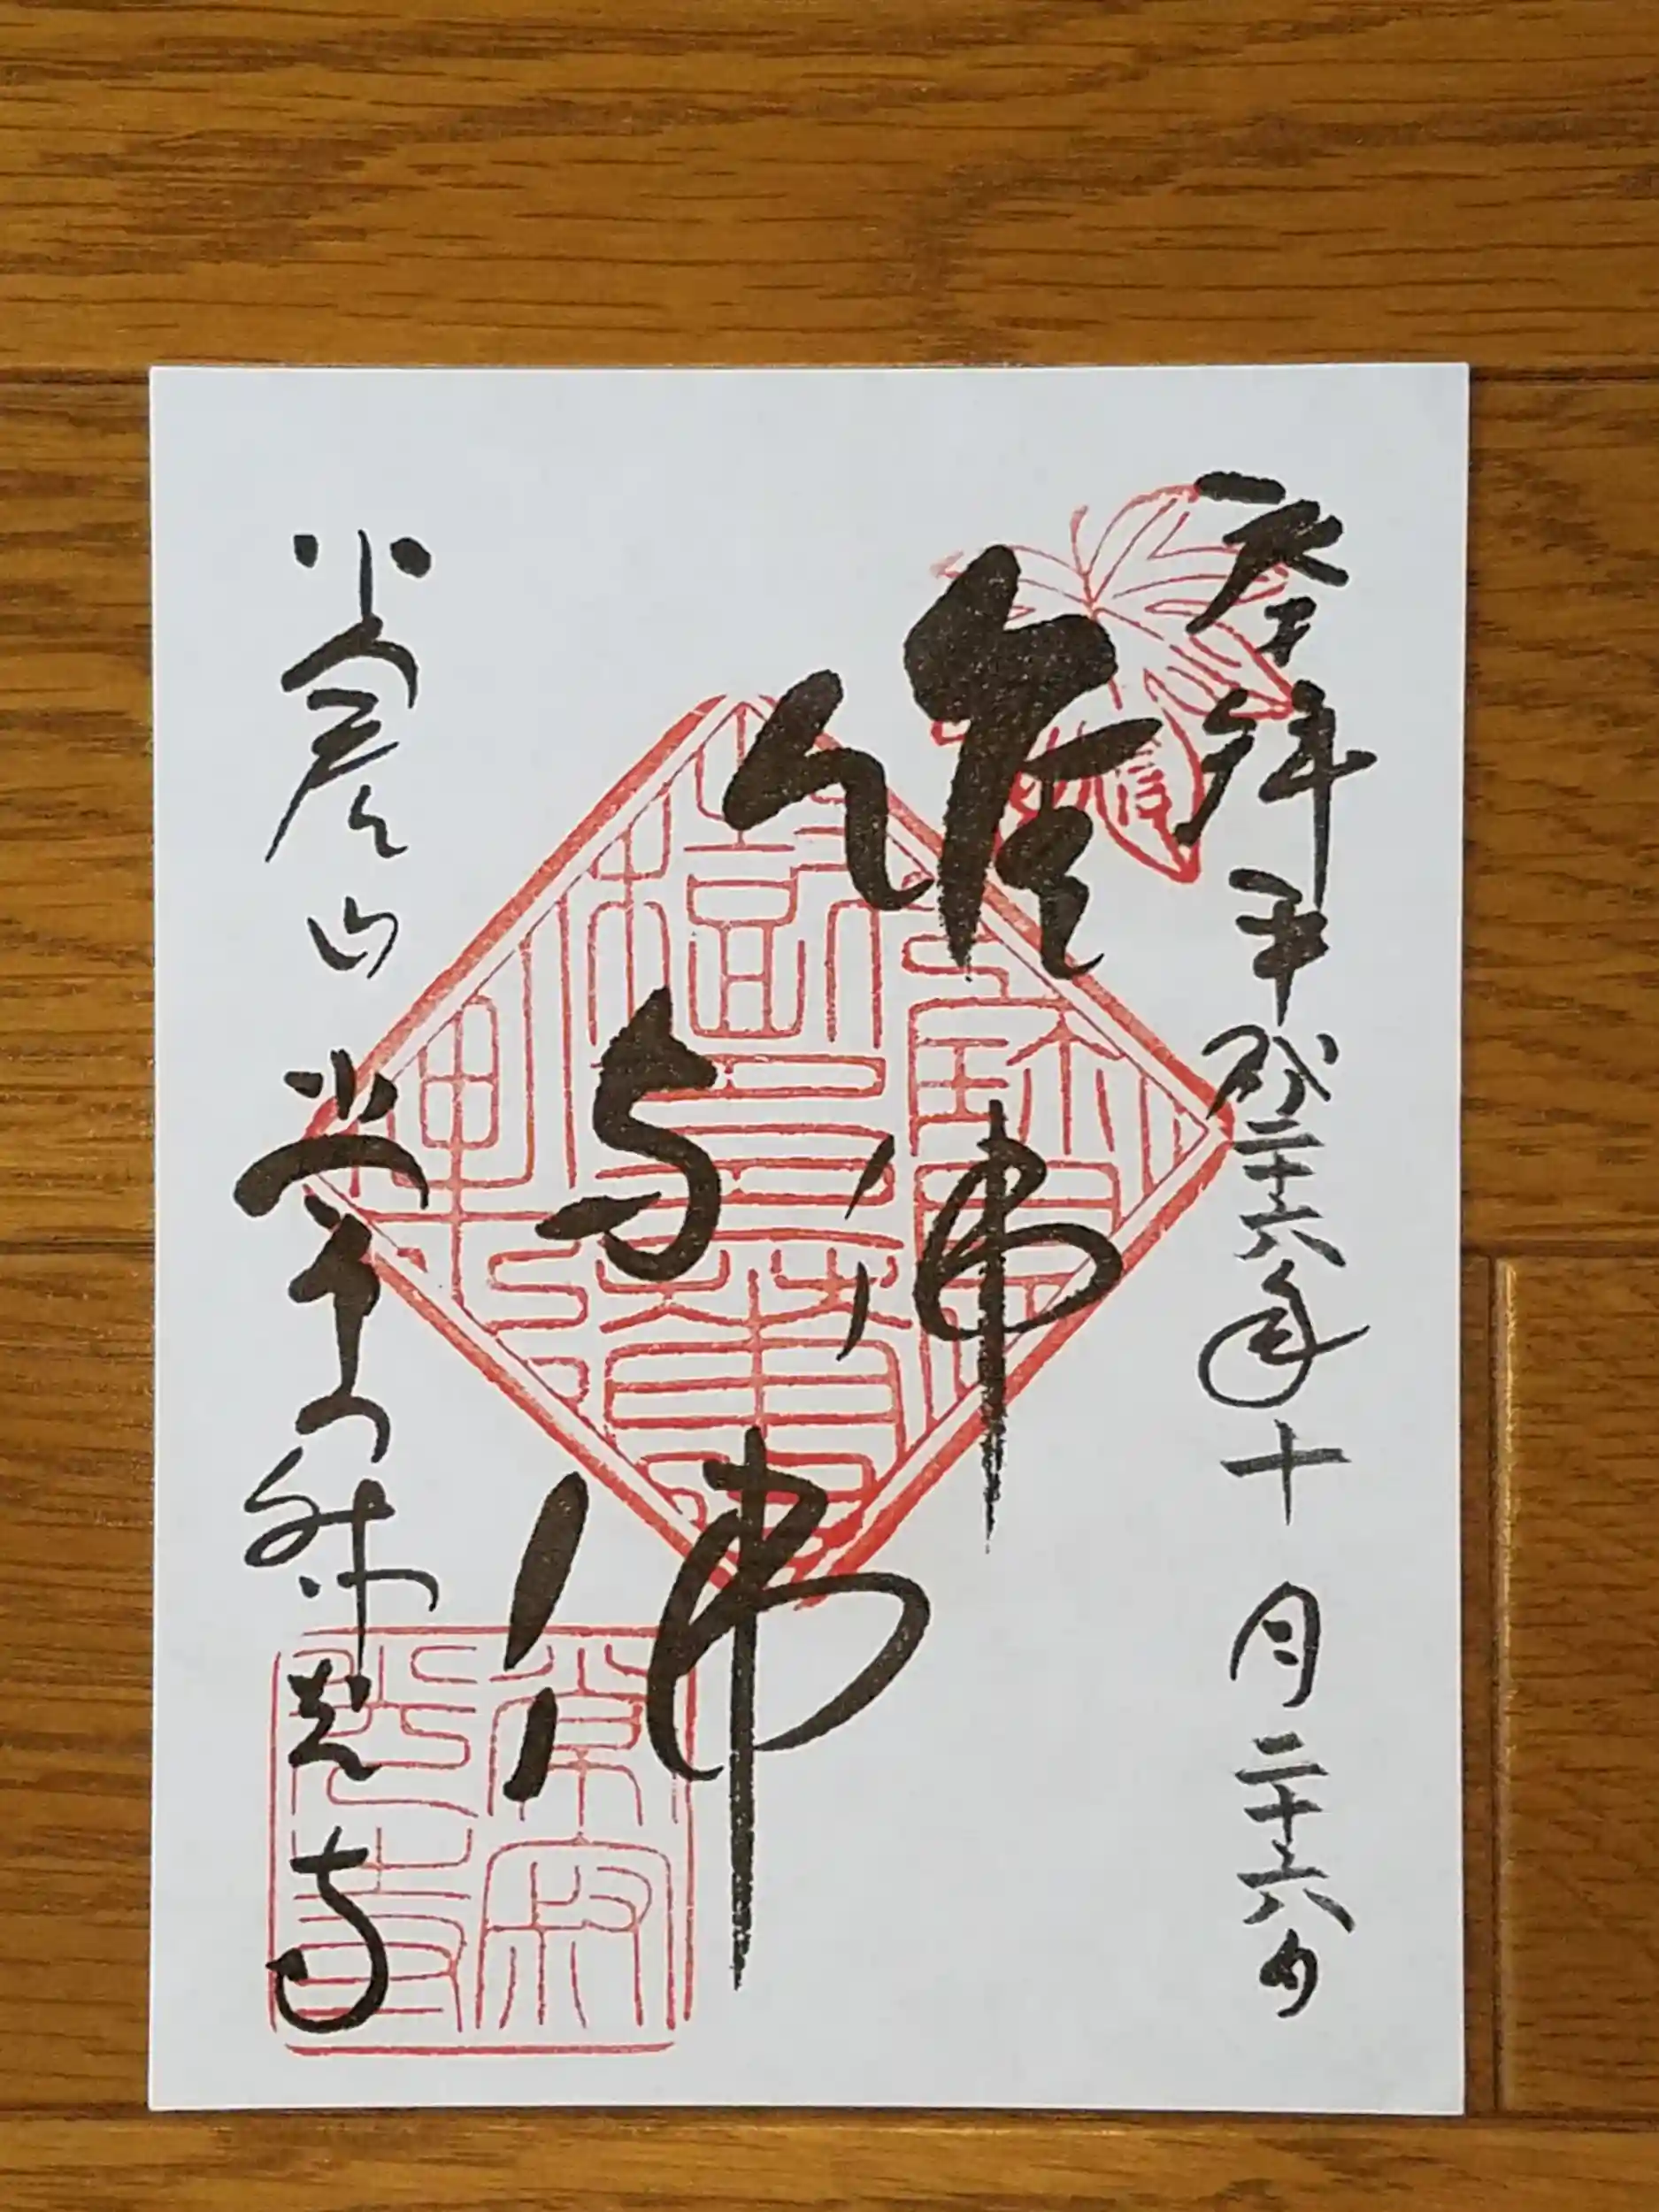 奉拝 平成二十六年十月二十六日
唯佛
与佛
小倉山 常寂光寺
常寂
光寺